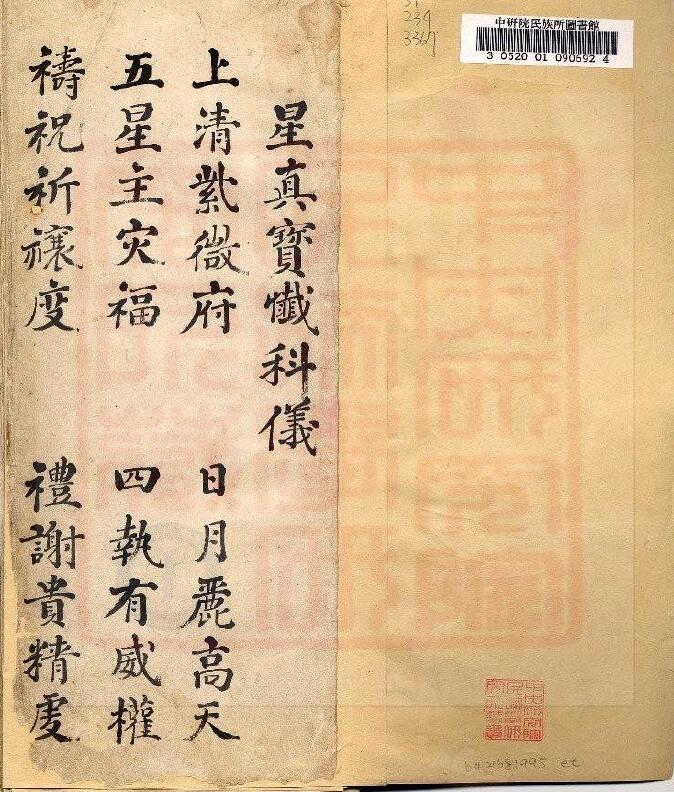 星真寶懺科儀
上清紫微府 日月麗高天
五星主灾福 四執有威權
禱祝祈禳度 禮謝貴精虔
中研院民族所圖書館
3 0520 01 090692 4